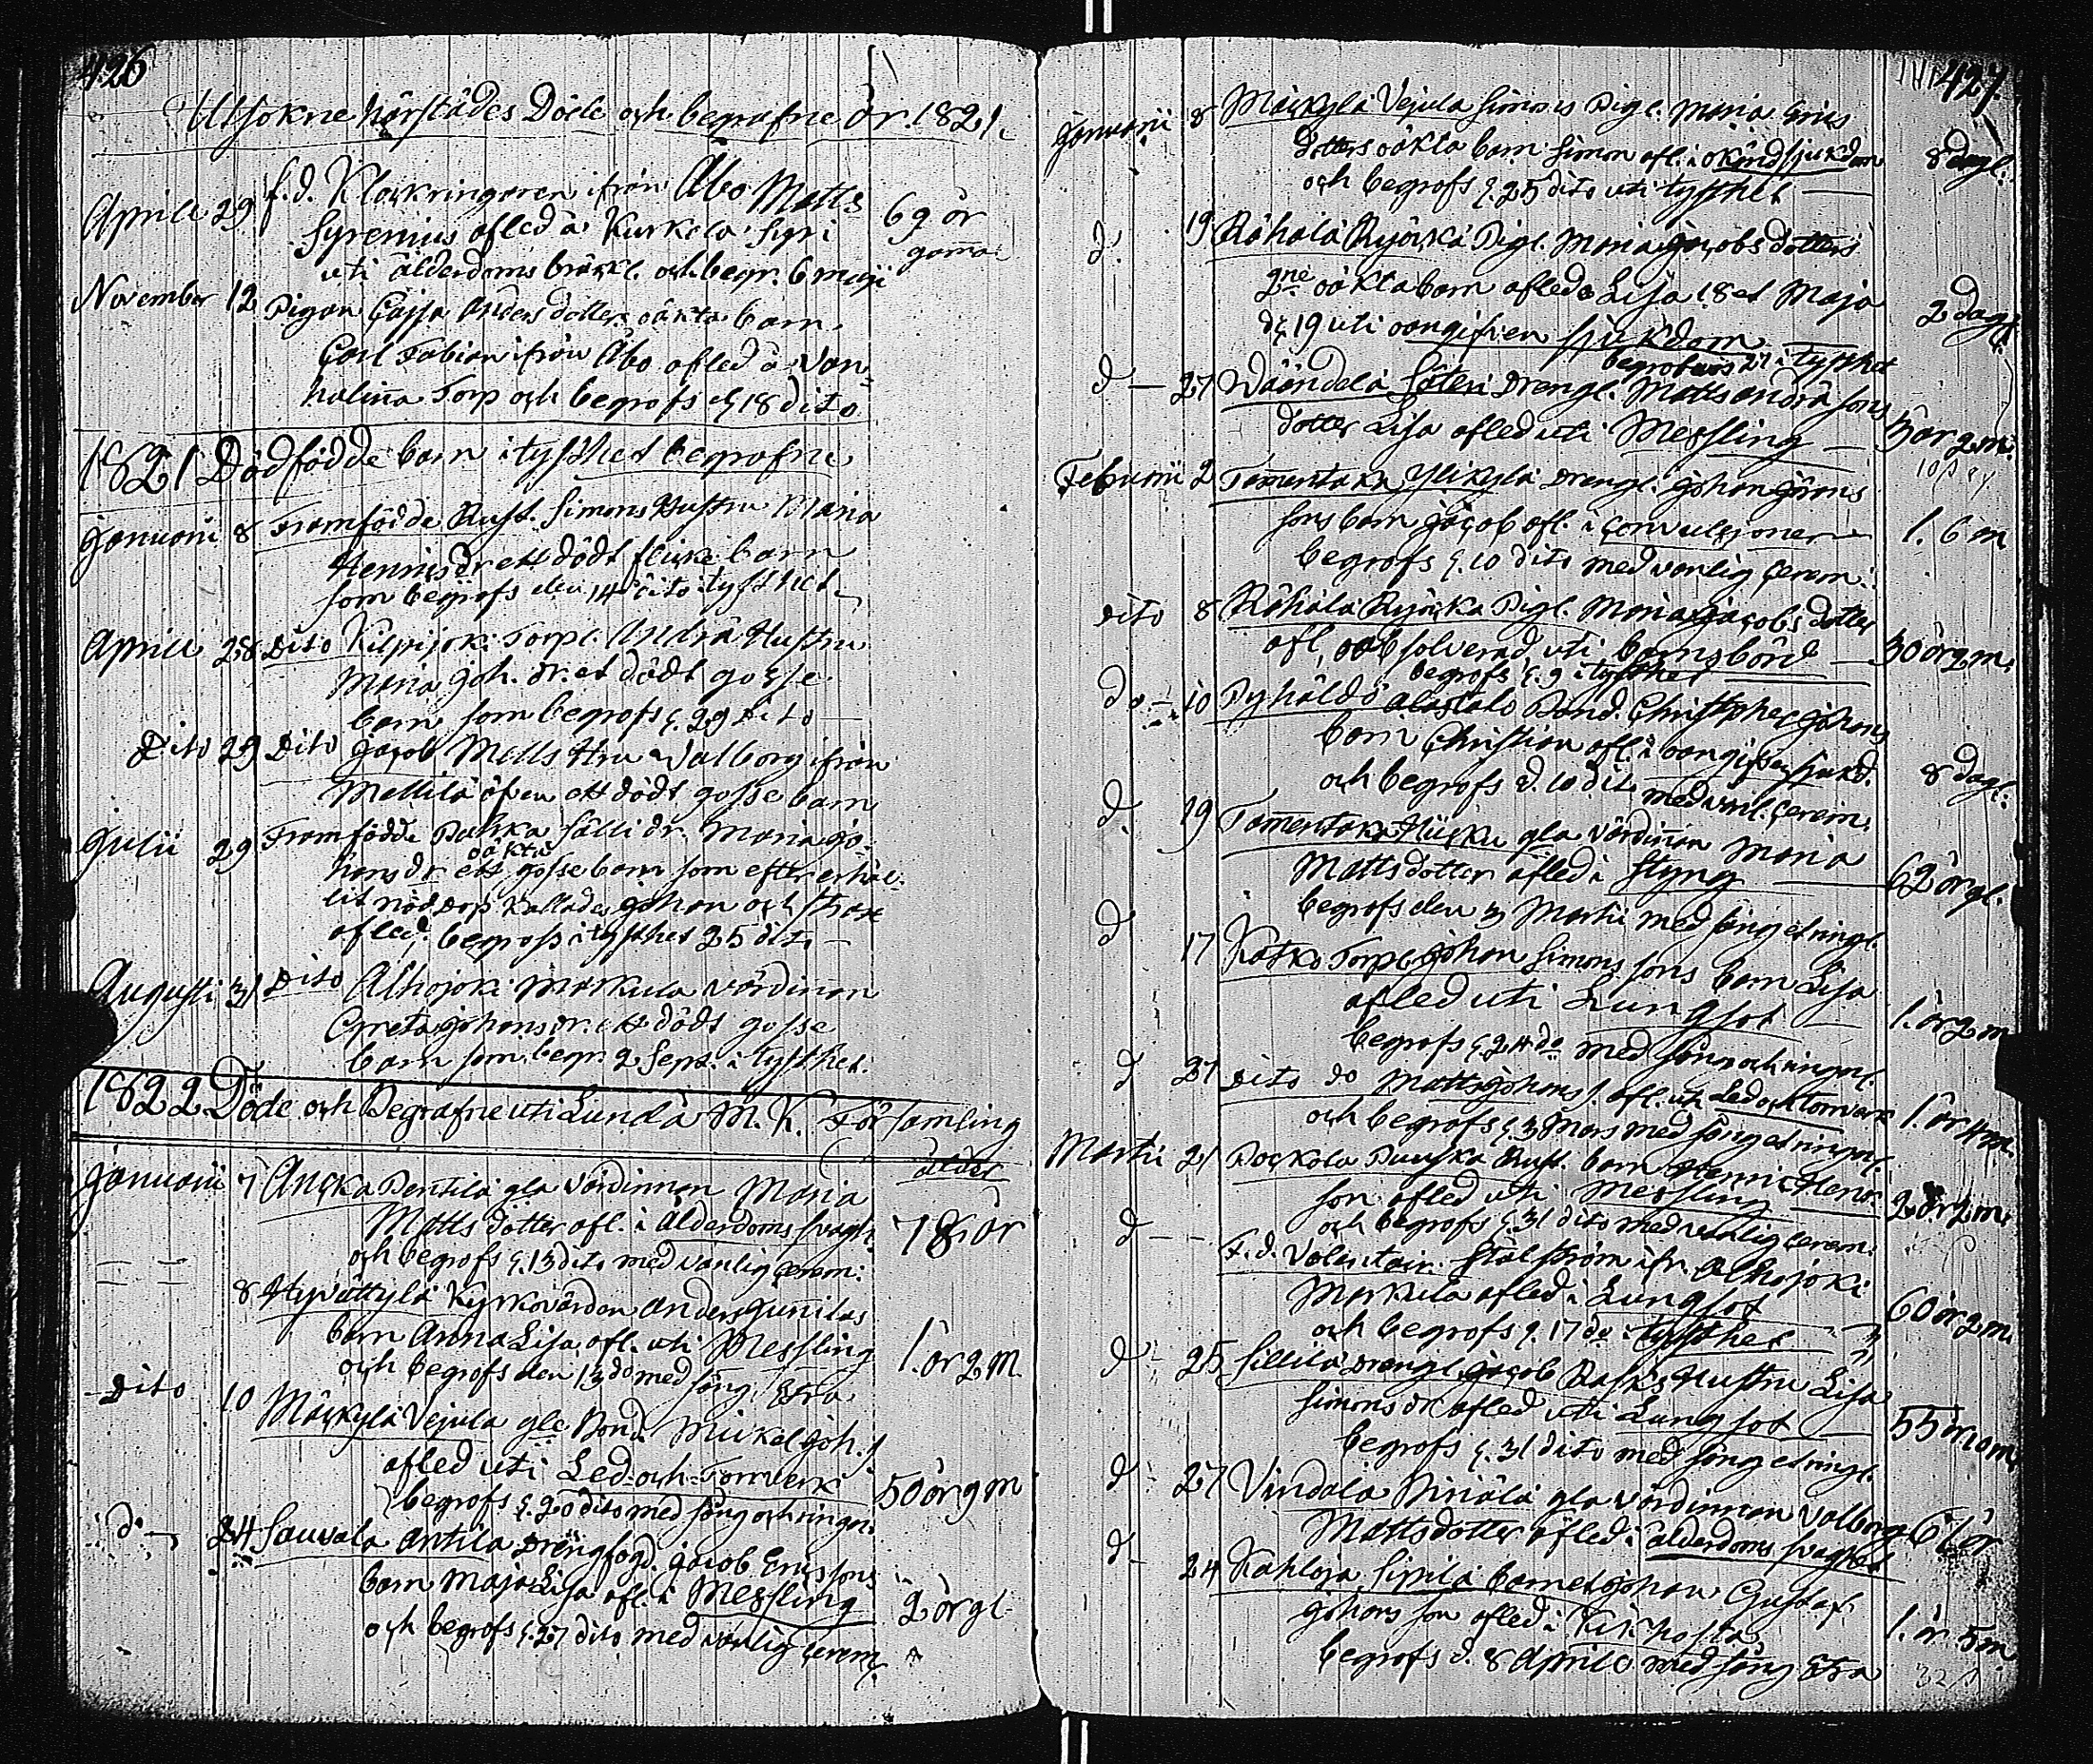 426
Utsokne härstädes Döde och begrafne år 1821.
Aprili 29 f.d. Klåckringaren ifrån Åbo Matts
Syrenius afled å Kurkela Syri
uti ålderdoms bräckl. och begr. 6 maji
69 år
gama
November 12 Pigan Cajsa Anders dotters oäkta barn
Carl Fabian ifrån Åbo afled å Van-
halinna Torp och begrofs d. 18 dito
1821 Dödfödde barn i tysthet begrafne
Januarii 8 Framfödde Rust. Simons Hustru Maria
Hennis dr ett dödt flicke barn
som begrofs den 14 dito i tysthet
Aprili 28 Dito Kilpijoki Torp. Andrä Hustru
Maria Joh. dr. et dödt gosse
barn som begrofs d. 29 Dito
Dito 29 Dito Jacob Matts Hru Valborg ifrån
Mellilä äfven ett dödt gosse barn
Julii 29 Framfödde Pahka Sälli dr. Maria Jo-
hans dr ett oäkta gosse barn som efter erhål-
lit nöddop kallades Johan och strax
afled. begrofs i tysthet 25 dito
Augusti 31 Dito Alhojoki Markula värdinnan
Greta Johans dr. ett dödt gosse
barn som begr. 2 Sept. i tysthet.
1822 Döde och Begrafne uti Lundå M. K. Församling
ålder
Januarii 7 Auska Pentilä gla värdinnan Maria
Matts dotter afl. i ålderdoms svagh.
och begrofs d. 13 dito med vanlig cerem:
78 år
8 Hyvättylä Kyrkovärden Anders Junilas
barn Anna Lisa afl. uti Messling
och begrofs den 13 do med sång Etra
1. år 2 m
Dito 10 Mäckylä Vejula gle Bond. Mickel Joh. s.
afled uti Led och Torrverk
begrofs d. 20 dito med sång och ringn:
50 år 9 m
d 24 Sauvala Antila Drängfogd. Jacob Ericssons
barn Maja Lisa afl. i Messling
och begrofs d. 27 dito med vanlig cerem
2 år gl
427
Januarii 8 Mäckylä Vejula Simons Pigl. Maria Erics
dotters oäkta barn Simon afl. i okänd sjukdom
och begrofs d. 25 dito uti tysthet
8 dagl:
d: 19 Rähälä Ryöckä Pigl. Maria Jacobs dotters
2ne oäkta barn afledo Lisa 18 et Maja
d. 19 uti oangifven sjukdom
begrofwos 27 i tysthet
2 dag
d 27 Säteri Drengl. Matts Andrä sons
dotter Lisa afled uti Messling
5 år 2 m.
Februarii 2 Tamentaka Ylikylä Drengl. Johan Jörans
sons barn Jacob afl. i Convulsioner
begrofs d. 10 dito med vanlig Cerem:
1. 6 m
dito 8 Rähälä Ryöckä Pigl. Maria Jacobs dotter
afl. oabsolverad uti barnsbörd
begrofs d. 9 i tysthet
30 år 2 m.
do 10 Pyhäldö Alastalo Bond. Christopher Johans
barn Christian afl. i oangifven sjukd.
och begrofs d. 10 dito med vanl. Cerem:
8 dagl:
d 19 Tamentaka gla värdinnan Maria
Mattsdotter afled i Styng
begrofs den 3 Martii med sång et ringl.
62 år gl.
d 17 Katko Torp. Johan Simons sons barn Lisa
afled uti Lungsot
begrofs d. 24 do med sång och ringn.
1. år 2 m
d 27 dito do Matts Johans s. afl. uti Led och torrverk
och begrofs d. 3 Mars med sång et ringn.
1. år 4 m.
Martii 21 Pockola Puuska Rust. barn Henric Henr.
son afled uti Messling
och begrofs d. 31 dito med vanlig cerem:
2 år 2 m.
d F.d. Volentair Stålström ifr. Alhojoki
Markula afled i Lungsot
och begrofs d. 17 do i tysthet
60 år 2 m.
d 25 Sillilä Drengl. Jacob Rasks Hustru Lisa
Simons dr afled uti Lungsot
begrofs d. 31 dito med sång et ringl.
55 år 10 m.
d 27 Vindala Ninälä gla värdinnan Valborg
Mattsdotter afled i ålderdoms svaghet
61 år
d 24 Kahloja Sipilä barnet Johan Gustaf
Johans son afled i Kikhosta
begrofs d. 8 Aprill med sång Etra
1. år 5 m